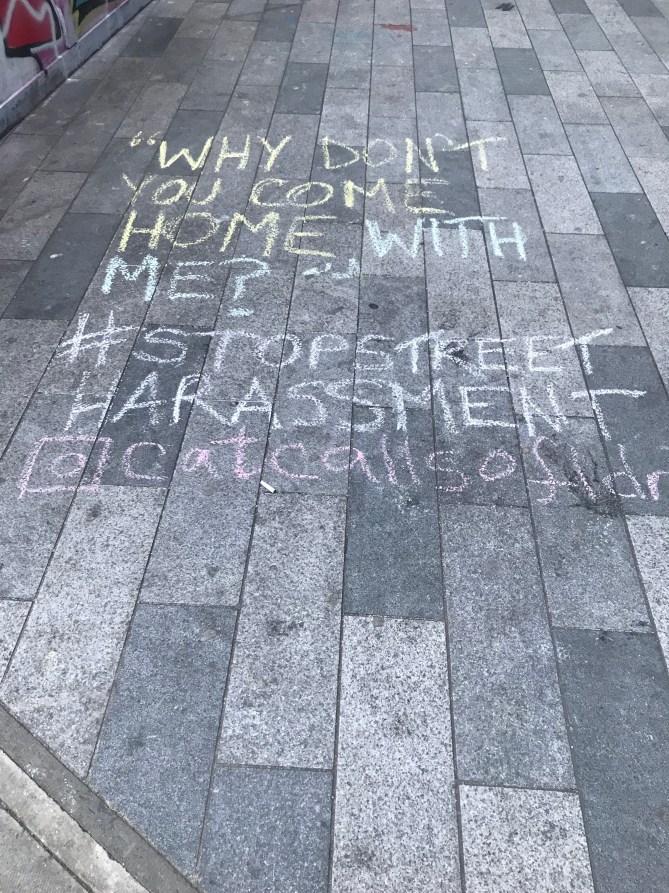 "WHY DON'T
YOU COME
HOME WITH
ME? "
#STOPSTREET
HARASSMENT
@catcallsofldn